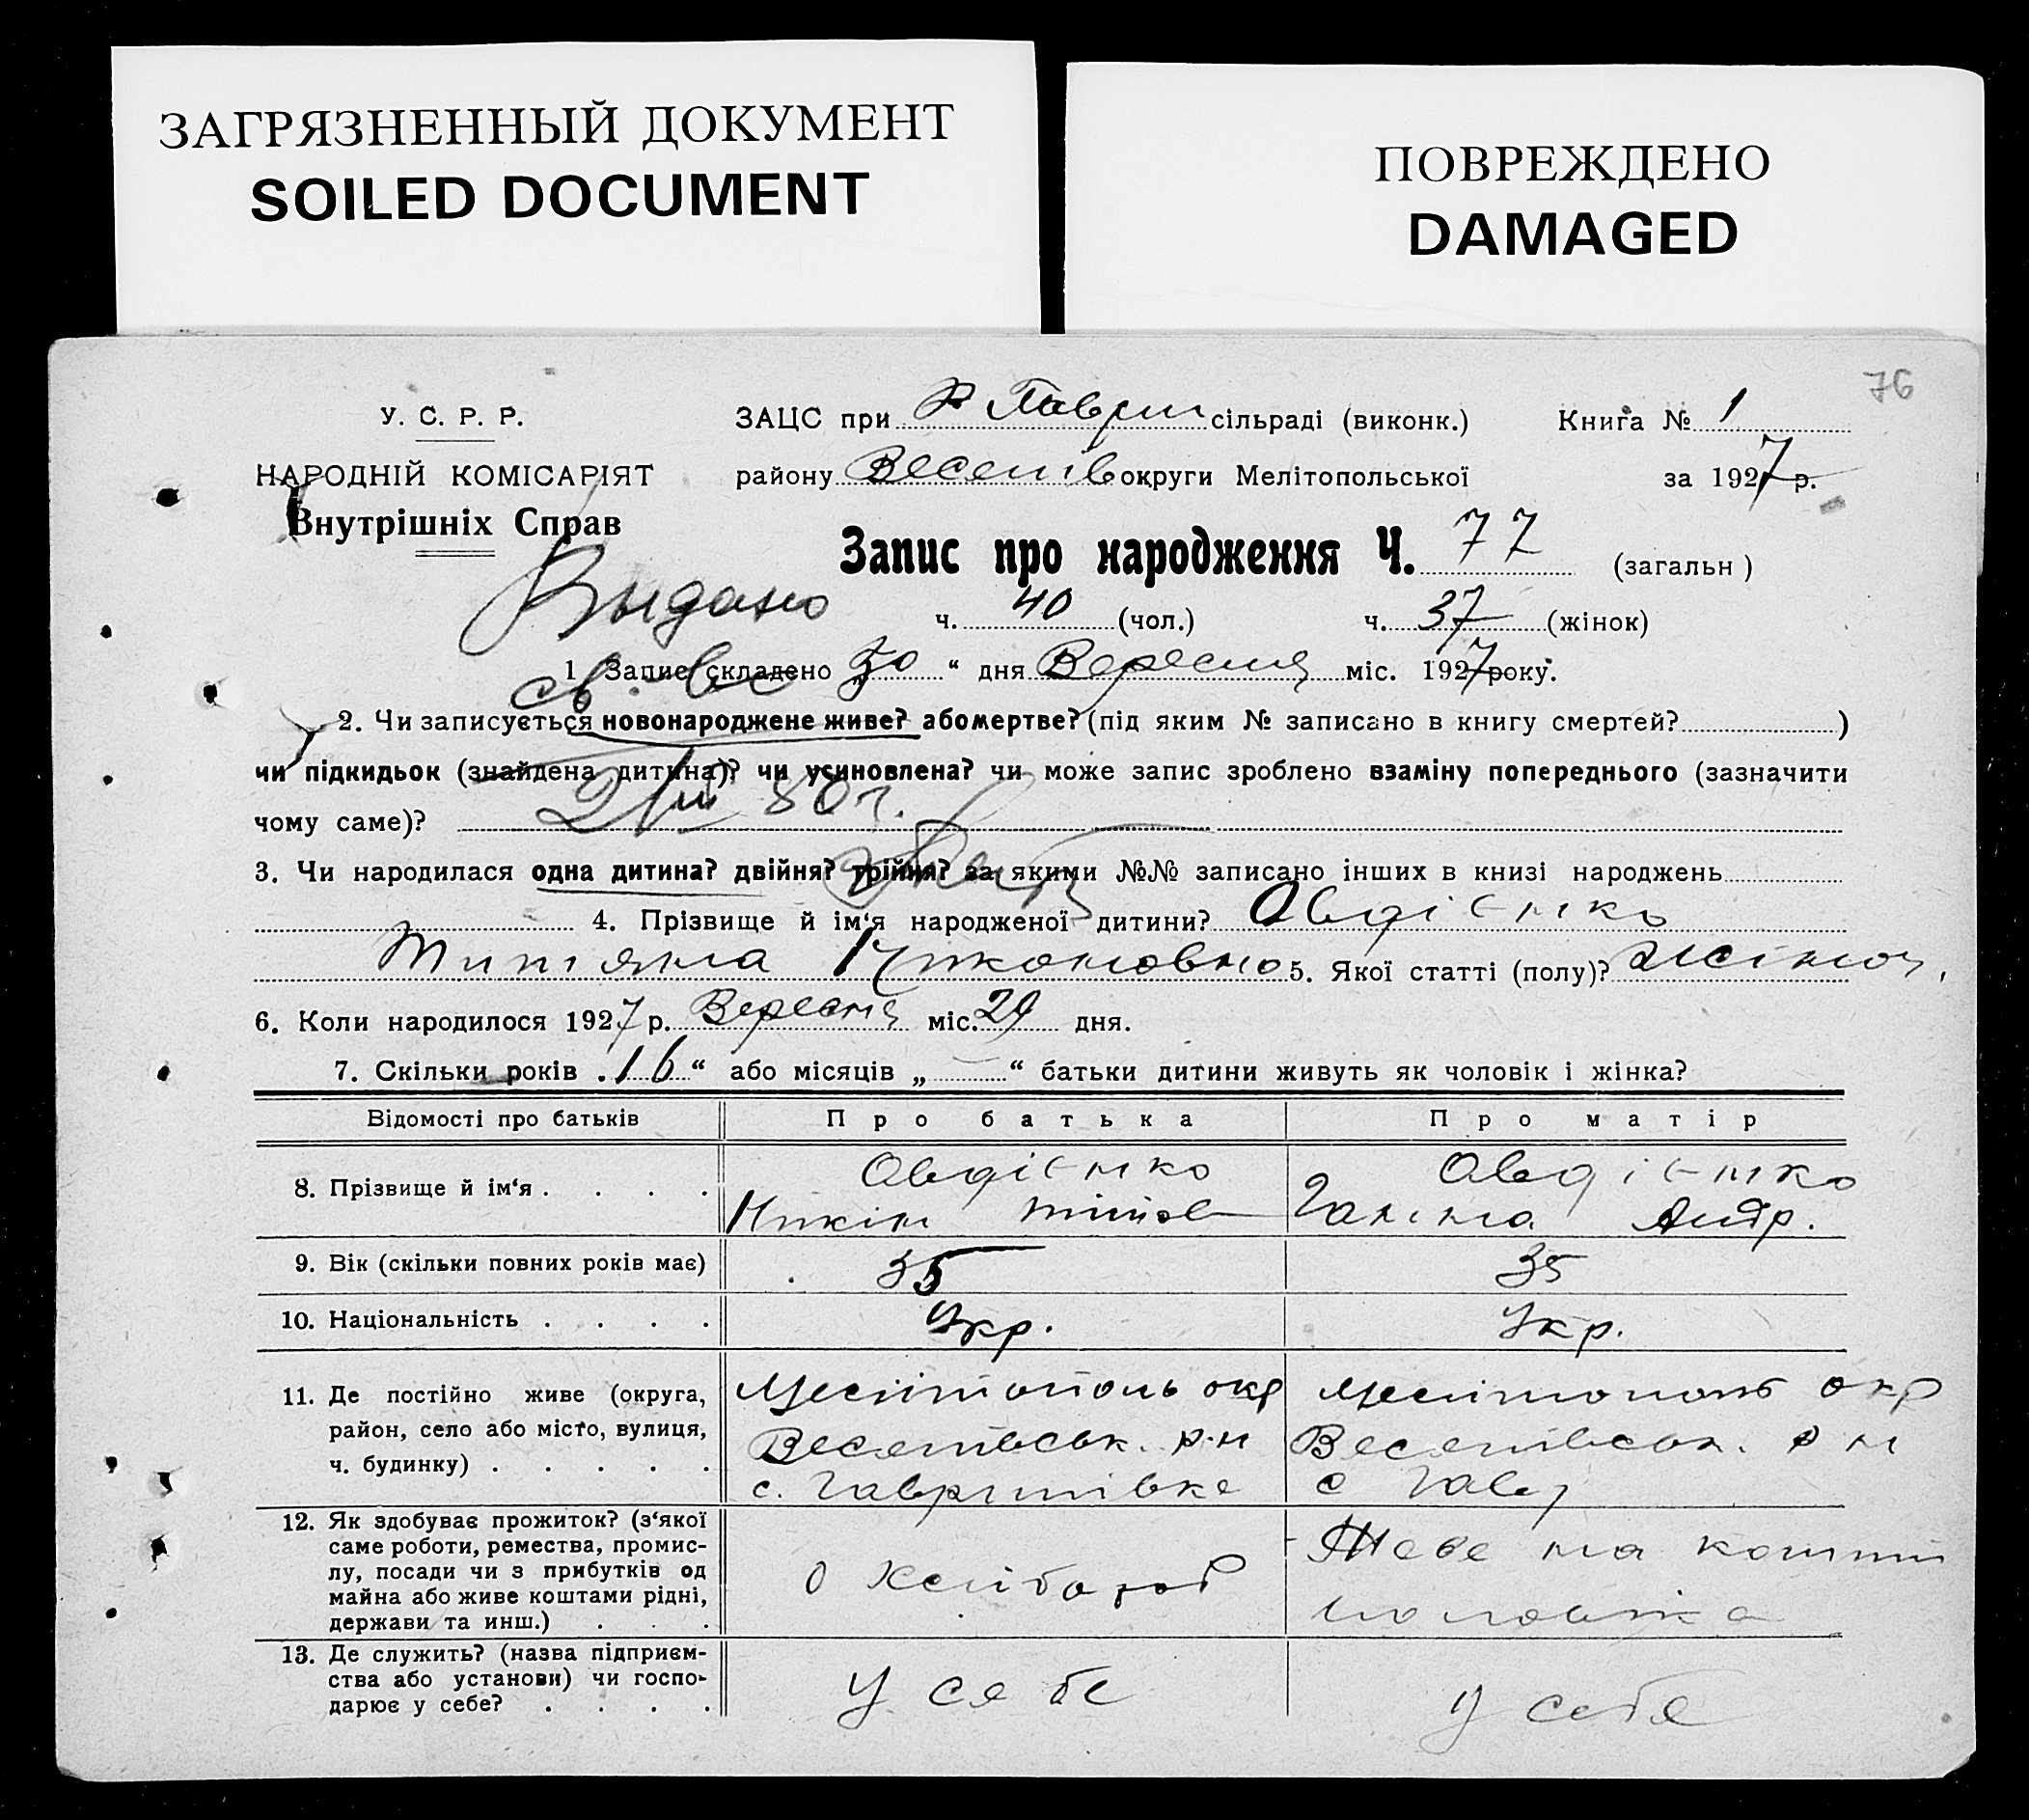 ЗАГРЯЗНЕННЫЙ ДОКУМЕНТ
SOILED DOCUMENT
ПОВРЕЖДЕНО
DAMAGED
76
У. С. Р. Р.
НАРОДНІЙ КОМІСАРІЯТ
Внутрішніх Справ
ЗАЦС при сільраді (виконк.) Книга № 1
району Веселів округи Мелітопольської за 1927 р.
Запис про народження Ч. 77 (загальн)
Выдано
ч. 40 (чол.) ч. 37 (жінок)
1 Запис складено „30“ дня Вересня міс. 1927 року.
св-во
2. Чи записується новонароджене живе? або мертве? (під яким № записано в книгу смертей? )
чи підкидьок (знайдена дитина)? чи усиновлена? чи може запис зроблено взаміну попереднього (зазначити
чому саме)?
80г.
3. Чи народилася одна дитина? двійня? трійня? за якими №№ записано інших в книзі народжень
4. Прізвище й ім‘я народженої дитини? Овдієнко
Титяна Ніконовно 5. Якої статті (полу)? Жіноч.
6. Коли народилося 1927 р. Вересня міс. 29 дня.
7. Скільки років „16“ або місяців „—“ батьки дитини живуть як чоловік і жінка?
Відомості про батьків Про батька Про матір
8. Прізвище й ім‘я . . . . Овдієнко Овдієнко
Нікін Ганна Андр.
9. Вік (скільки повних років має) 35 35
10. Національність . . . . Укр. Укр.
11. Де постійно живе (округа, Мелітополь окр Мелітополь окр
район, село або місто, вулиця, Веселівськ. р-н Веселівськ. р н
ч. будинку) . . . . . с. Гаврилівка с Гавр
12. Як здобуває прожиток? (з‘якої
саме роботи, ремества, промис- Живе на кошти
лу, посади чи з прибутків од О хлібороб
майна або живе коштами рідні, чоловіка
держави та инш.) . . .
13. Де служить? (назва підприєм-
ства або установи) чи госпо- у себе у себе
дарює у себе? . . . .